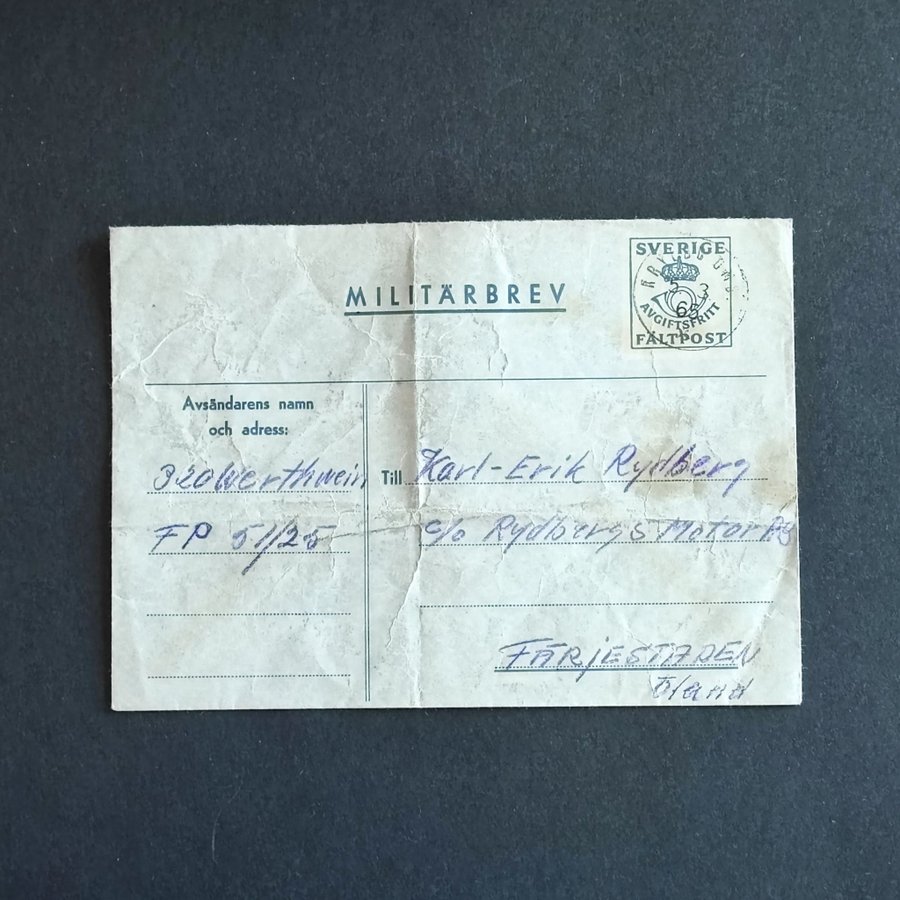 MILITÄRBREV
SVERIGE
5 3
65
AVGIFTSFRITT
FÄLTPOST
Avsändarens namn
och adress:
FP 51/25
Till Karl-Erik Rydberg
c/o Rydbergs Motor AB
FÄRJESTADEN
Öland